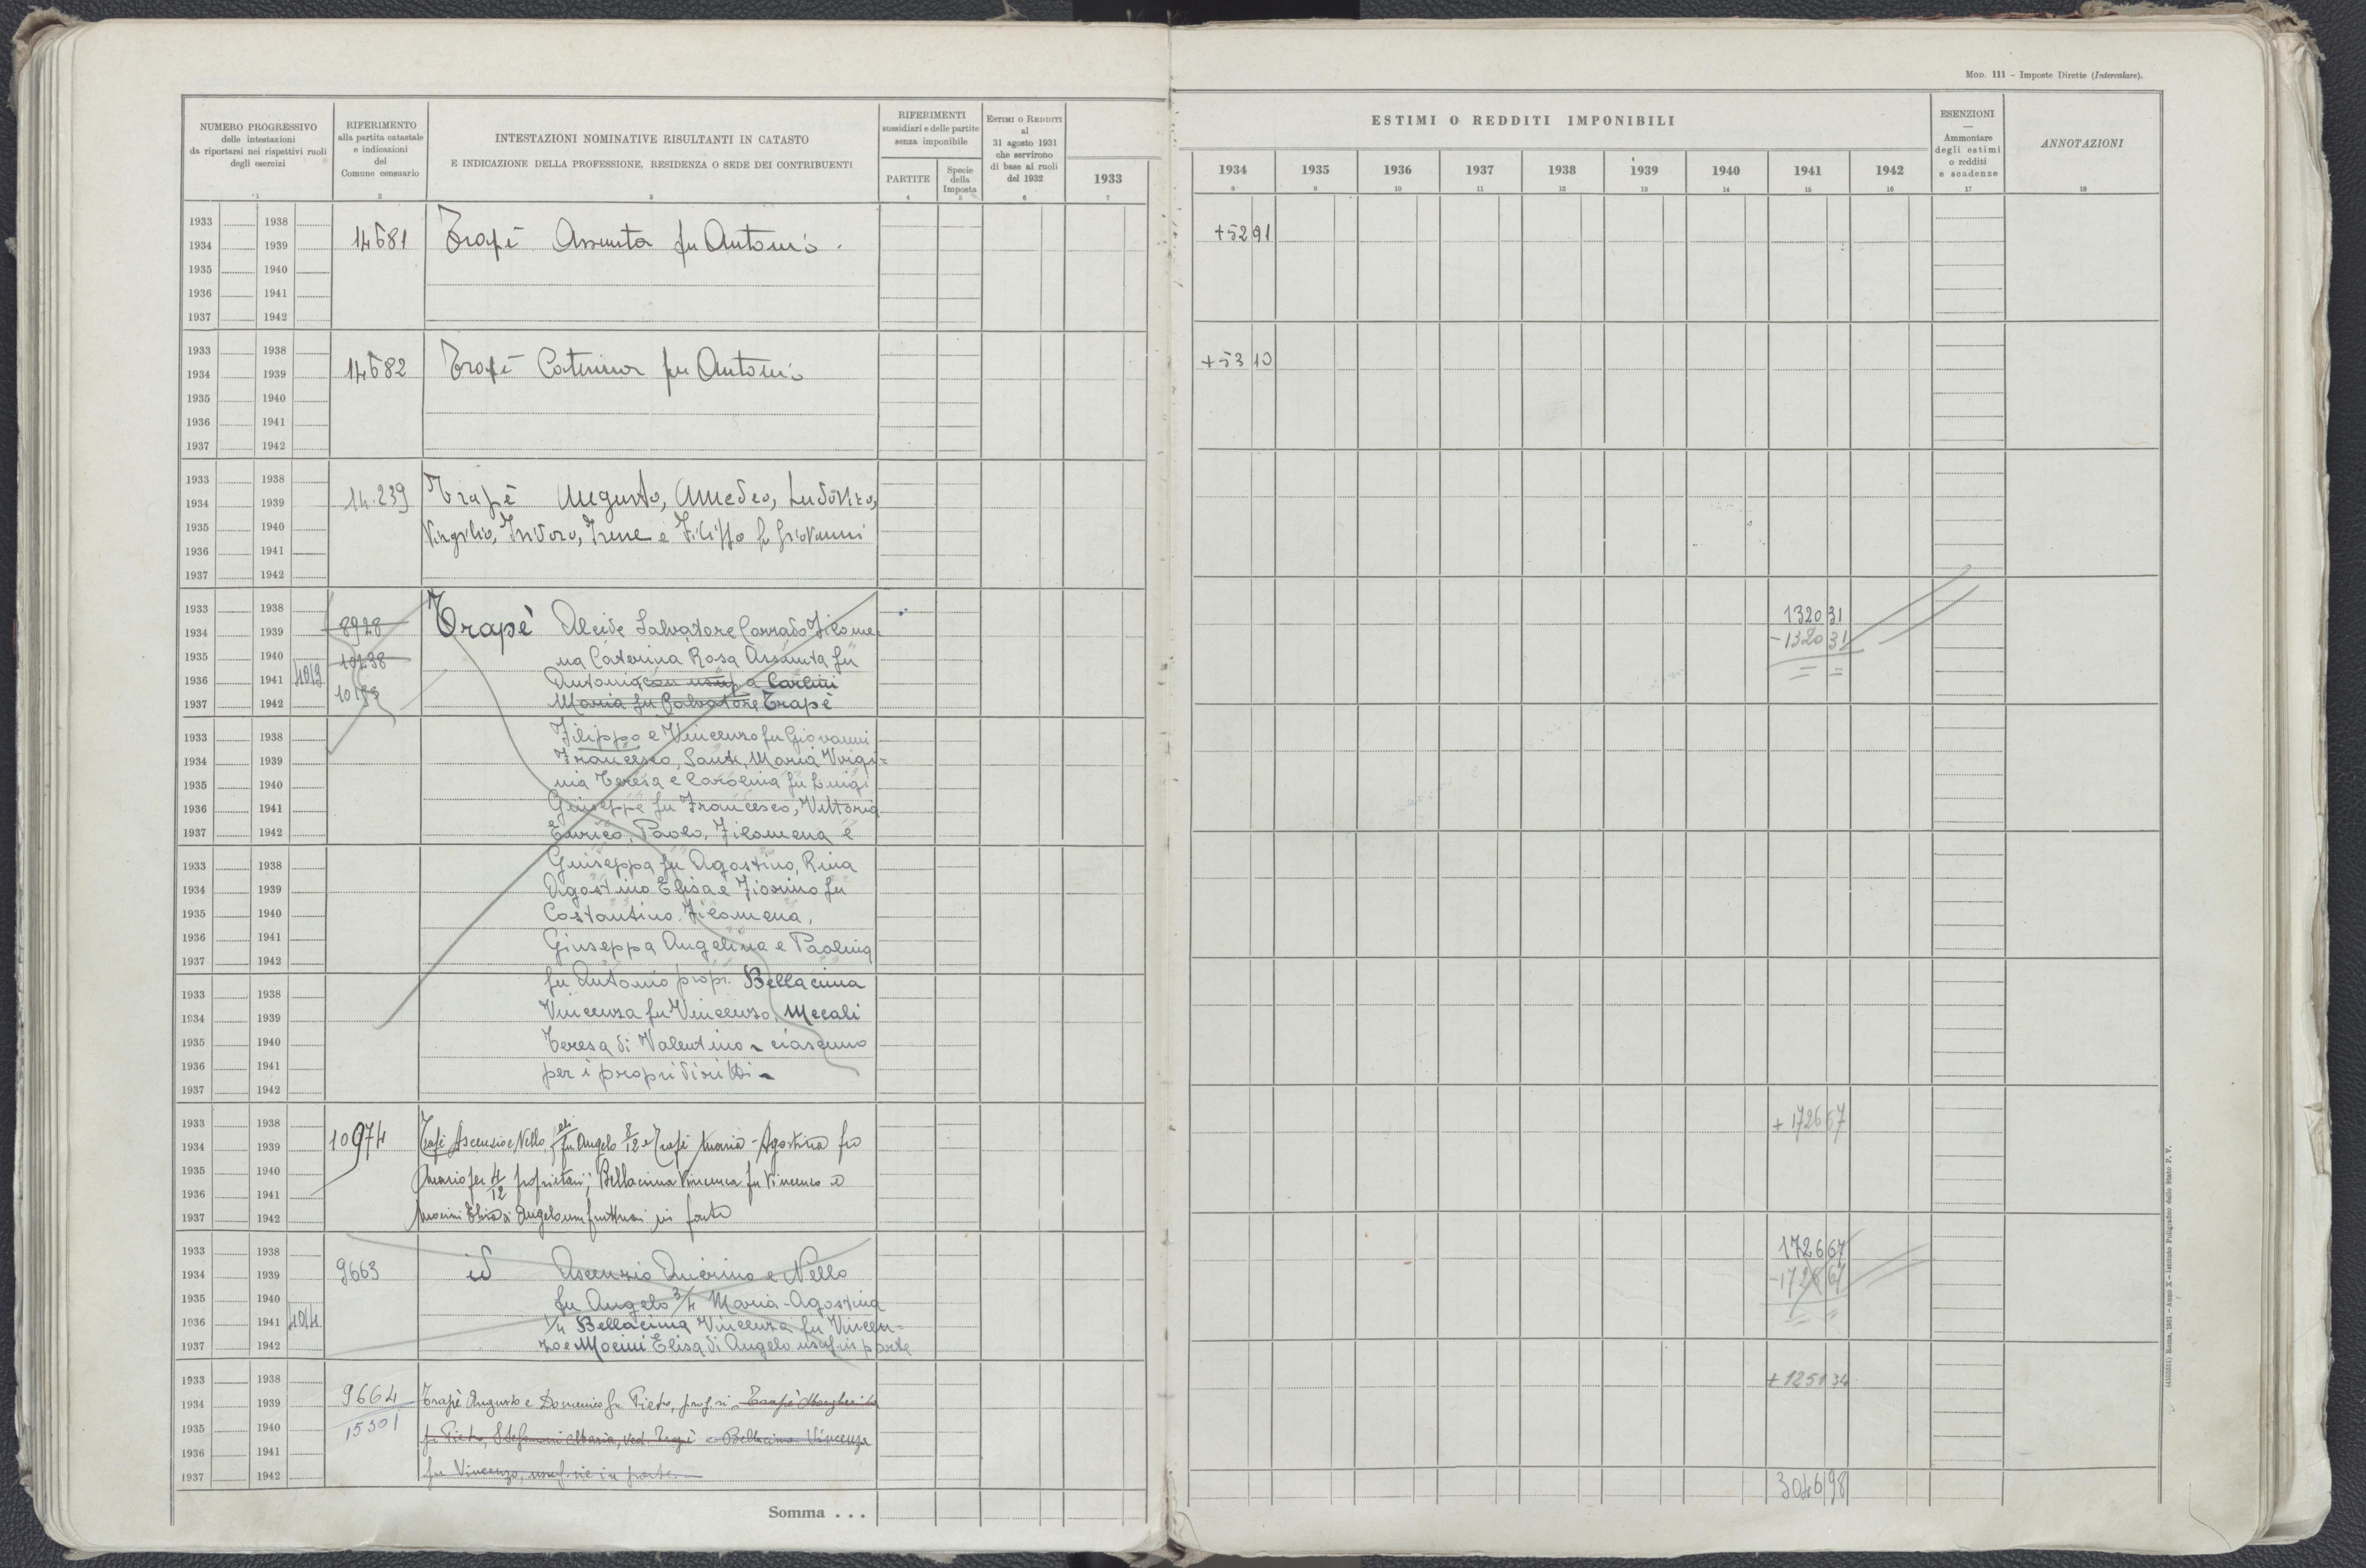 Mod. 111 – Imposte Dirette (Intercalare).
NUMERO PROGRESSIVO
delle intestazioni
da riportarsi nei rispettivi ruoli
degli esercizi
1
RIFERIMENTO
alla partita catastale
e indicazioni
del
Comune censuario
2
INTESTAZIONI NOMINATIVE RISULTANTI IN CATASTO
E INDICAZIONE DELLA PROFESSIONE, RESIDENZA O SEDE DEI CONTRIBUENTI
3
RIFERIMENTI
sussidiari e delle partite
senza imponibile
PARTITE
4
Specie
della
Imposta
5
Estimi o Redditi
al
31 agosto 1931
che servirono
di base ai ruoli
del 1932
6
1933
7
ESTIMI O REDDITI IMPONIBILI
1934 1935 1936 1937 1938 1939 1940 1941 1942
8 9 10 11 12 13 14 15 16
ESENZIONI
—
Ammontare
degli estimi
o redditi
e scadenze
17
ANNOTAZIONI
18
1933 1938
1934 1939 14681 Trapè Assunta fu Antonio +52 91
1935 1940
1936 1941
1937 1942
1933 1938
1934 1939 14682 Trapè Caterina fu Antonio +53 10
1935 1940
1936 1941
1937 1942
1933 1938
1934 1939 14.239 Trapè Augusto, Amedeo, Ludovico,
1935 1940 Virgilio, Isidoro, Irene e Filippo fu Giovanni
1936 1941
1937 1942
1933 1938 1320 31
1934 1939 8928 Trapè Alcide Salvatore Corrado Filome- -1320 31
1935 1940 10238 na Caterina Rosa Assunta fu
1936 1941 4013 Antonio con usuf a Carlini = =
1937 1942 Maria fu Salvatore Trapè
1933 1938 Filippo e Vincenzo fu Giovanni
1934 1939 Francesco, Sante, Maria Virgi=
1935 1940 nia Teresa e Carolina fu Luigi
1936 1941 Giuseppe fu Francesco, Vittoria
1937 1942 Enrico, Paolo, Filomena e
1933 1938 Giuseppa fu Agostino, Rina
1934 1939 Agostino Elisa e Fiorino fu
1935 1940 Costantino. Filomena,
1936 1941 Giuseppa Angelina e Paolina
1937 1942 fu Antonio propr. Bellacima
1933 1938
1934 1939 Vincenza fu Vincenzo, Mecali
1935 1940 Teresa di Valentino - ciascuno
1936 1941 per i propri diritti -
1937 1942
1933 1938 + 1726 67
1934 1939 10974 Trapè Ascenzio e Nello fu Angelo 8/12 e Trapè Maria-Agostina fu
1935 1940 Mario per 4/12 proprietari; Bellacima Vincenza fu Vincenzo e
1936 1941
1937 1942 Mocini Elisa di Angelo usufruttuari in parte
1933 1938 1726 67
1934 1939 9663 id Ascenzio Quirino e Nello -1726 67
1935 1940 fu Angelo 3/4 Maria-Agostina
1936 1941 4014 1/4 Bellacima Vincenza fu Vincen= = =
1937 1942 zo e Mocini Elisa di Angelo usuf. in parte
1933 1938 + 1251 34
1934 1939 9664 Trapè Augusto e Domenico fu Pietro, prop.ri, Trapè Margherita
1935 1940 15301 fu Pietro, Stefanoni Maria, ved. Trapè e Bellacima Vincenza
1936 1941
1937 1942 fu Vincenzo, usuf.rie in parte
Somma . . . 3046 98
(4103531) Roma, 1931 - Anno X - Istituto Poligrafico dello Stato P. V.